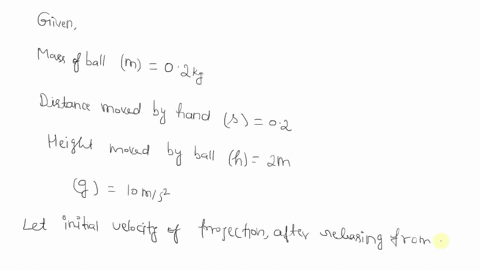 Given,
Mass of ball (m) = 0.2kg
Distance moved by hand (s) = 0.2
Height moved by ball (h) = 2m
(g) = 10 m/s²
Let initial velocity of projection, after releasing from